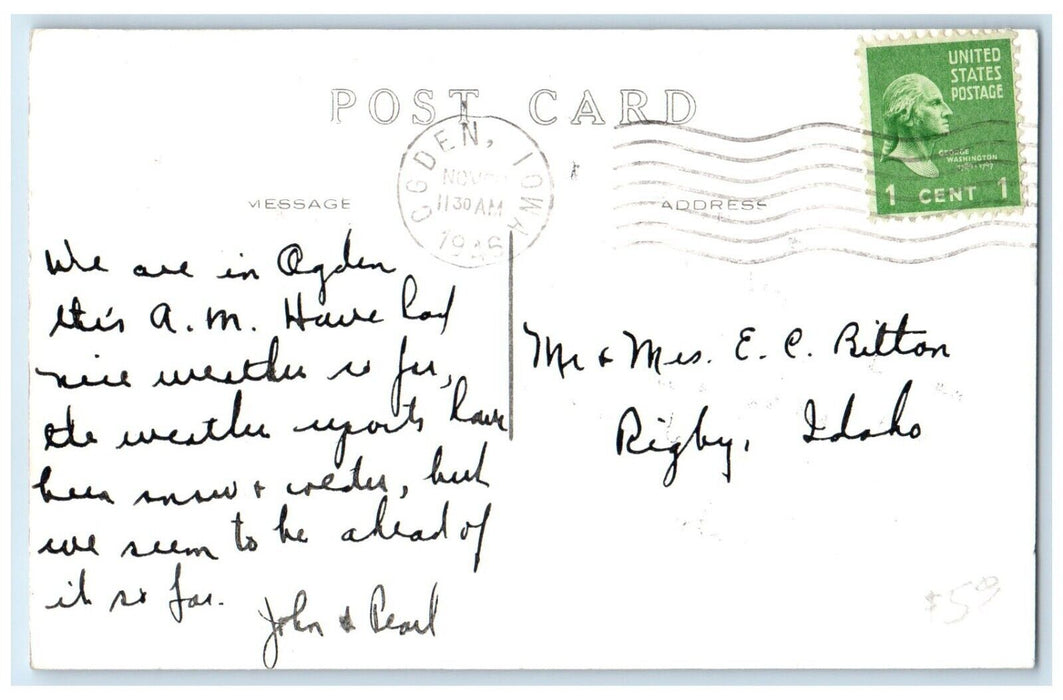 POST CARD
UNITED
STATES
POSTAGE
GEORGE
WASHINGTON
1 CENT 1
OGDEN, IOWA
NOV
11 30 AM
1946
MESSAGE
ADDRESS
We are in Ogden
this A.M. Have had
nice weather so far,
the weather reports have
been snow & colder, but
we seem to be ahead of
it so far.
John & Pearl
Mr & Mrs. E. C. Bitton
Rigby, Idaho
$5.00